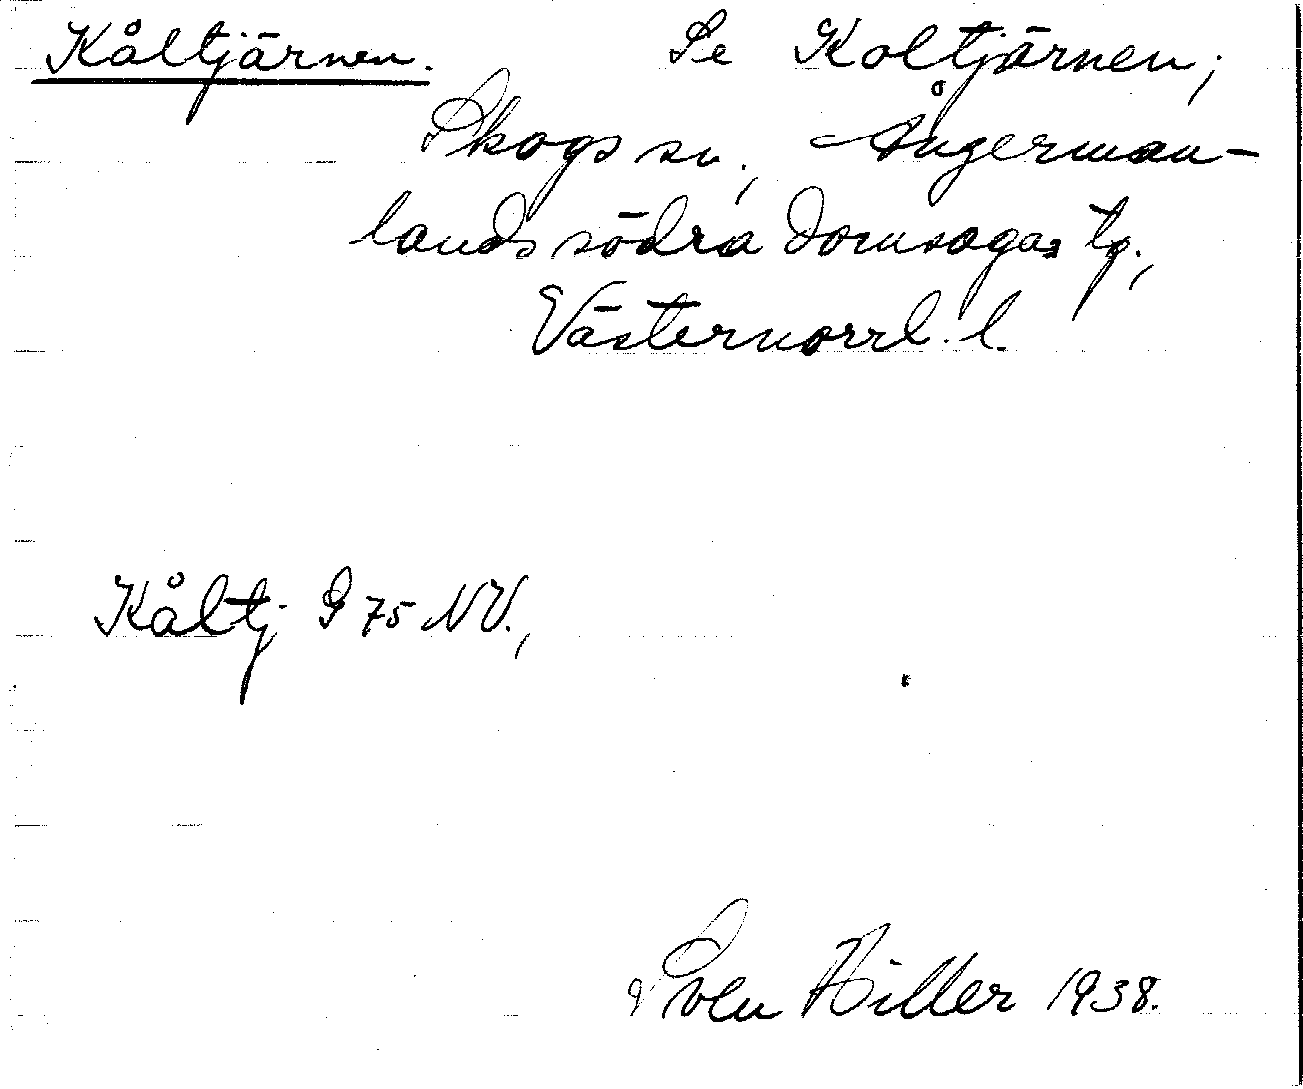 Kåltjärnen. Se Koltjärnen;
Skogs sn., Ångerman-
lands södra domsagas tg.,
Västernorrl. l.
Kåltj G 75 NV.,
Sven Hiller 1938.